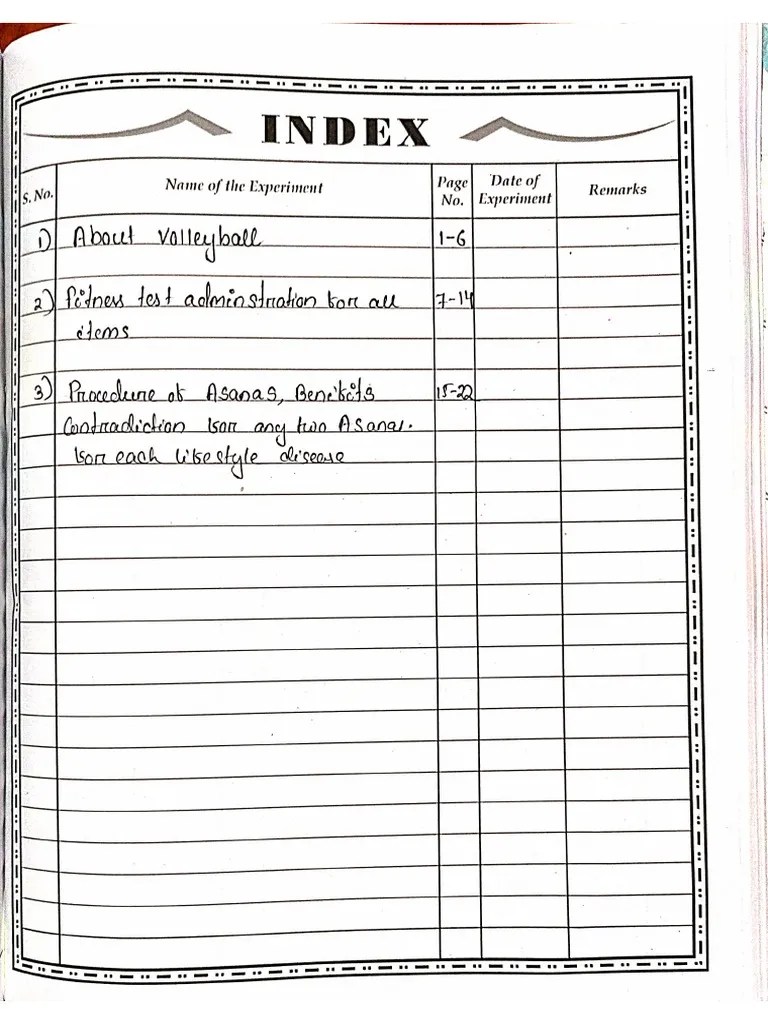 INDEX
S. No. Name of the Experiment Page No. Date of Experiment Remarks
1) About Volleyball 1-6
2) Fitness test adminstration for all 7-14
items
3) Procedure of Asanas, Benefits 15-22
Contradiction for any two Asanas.
for each lifestyle disease